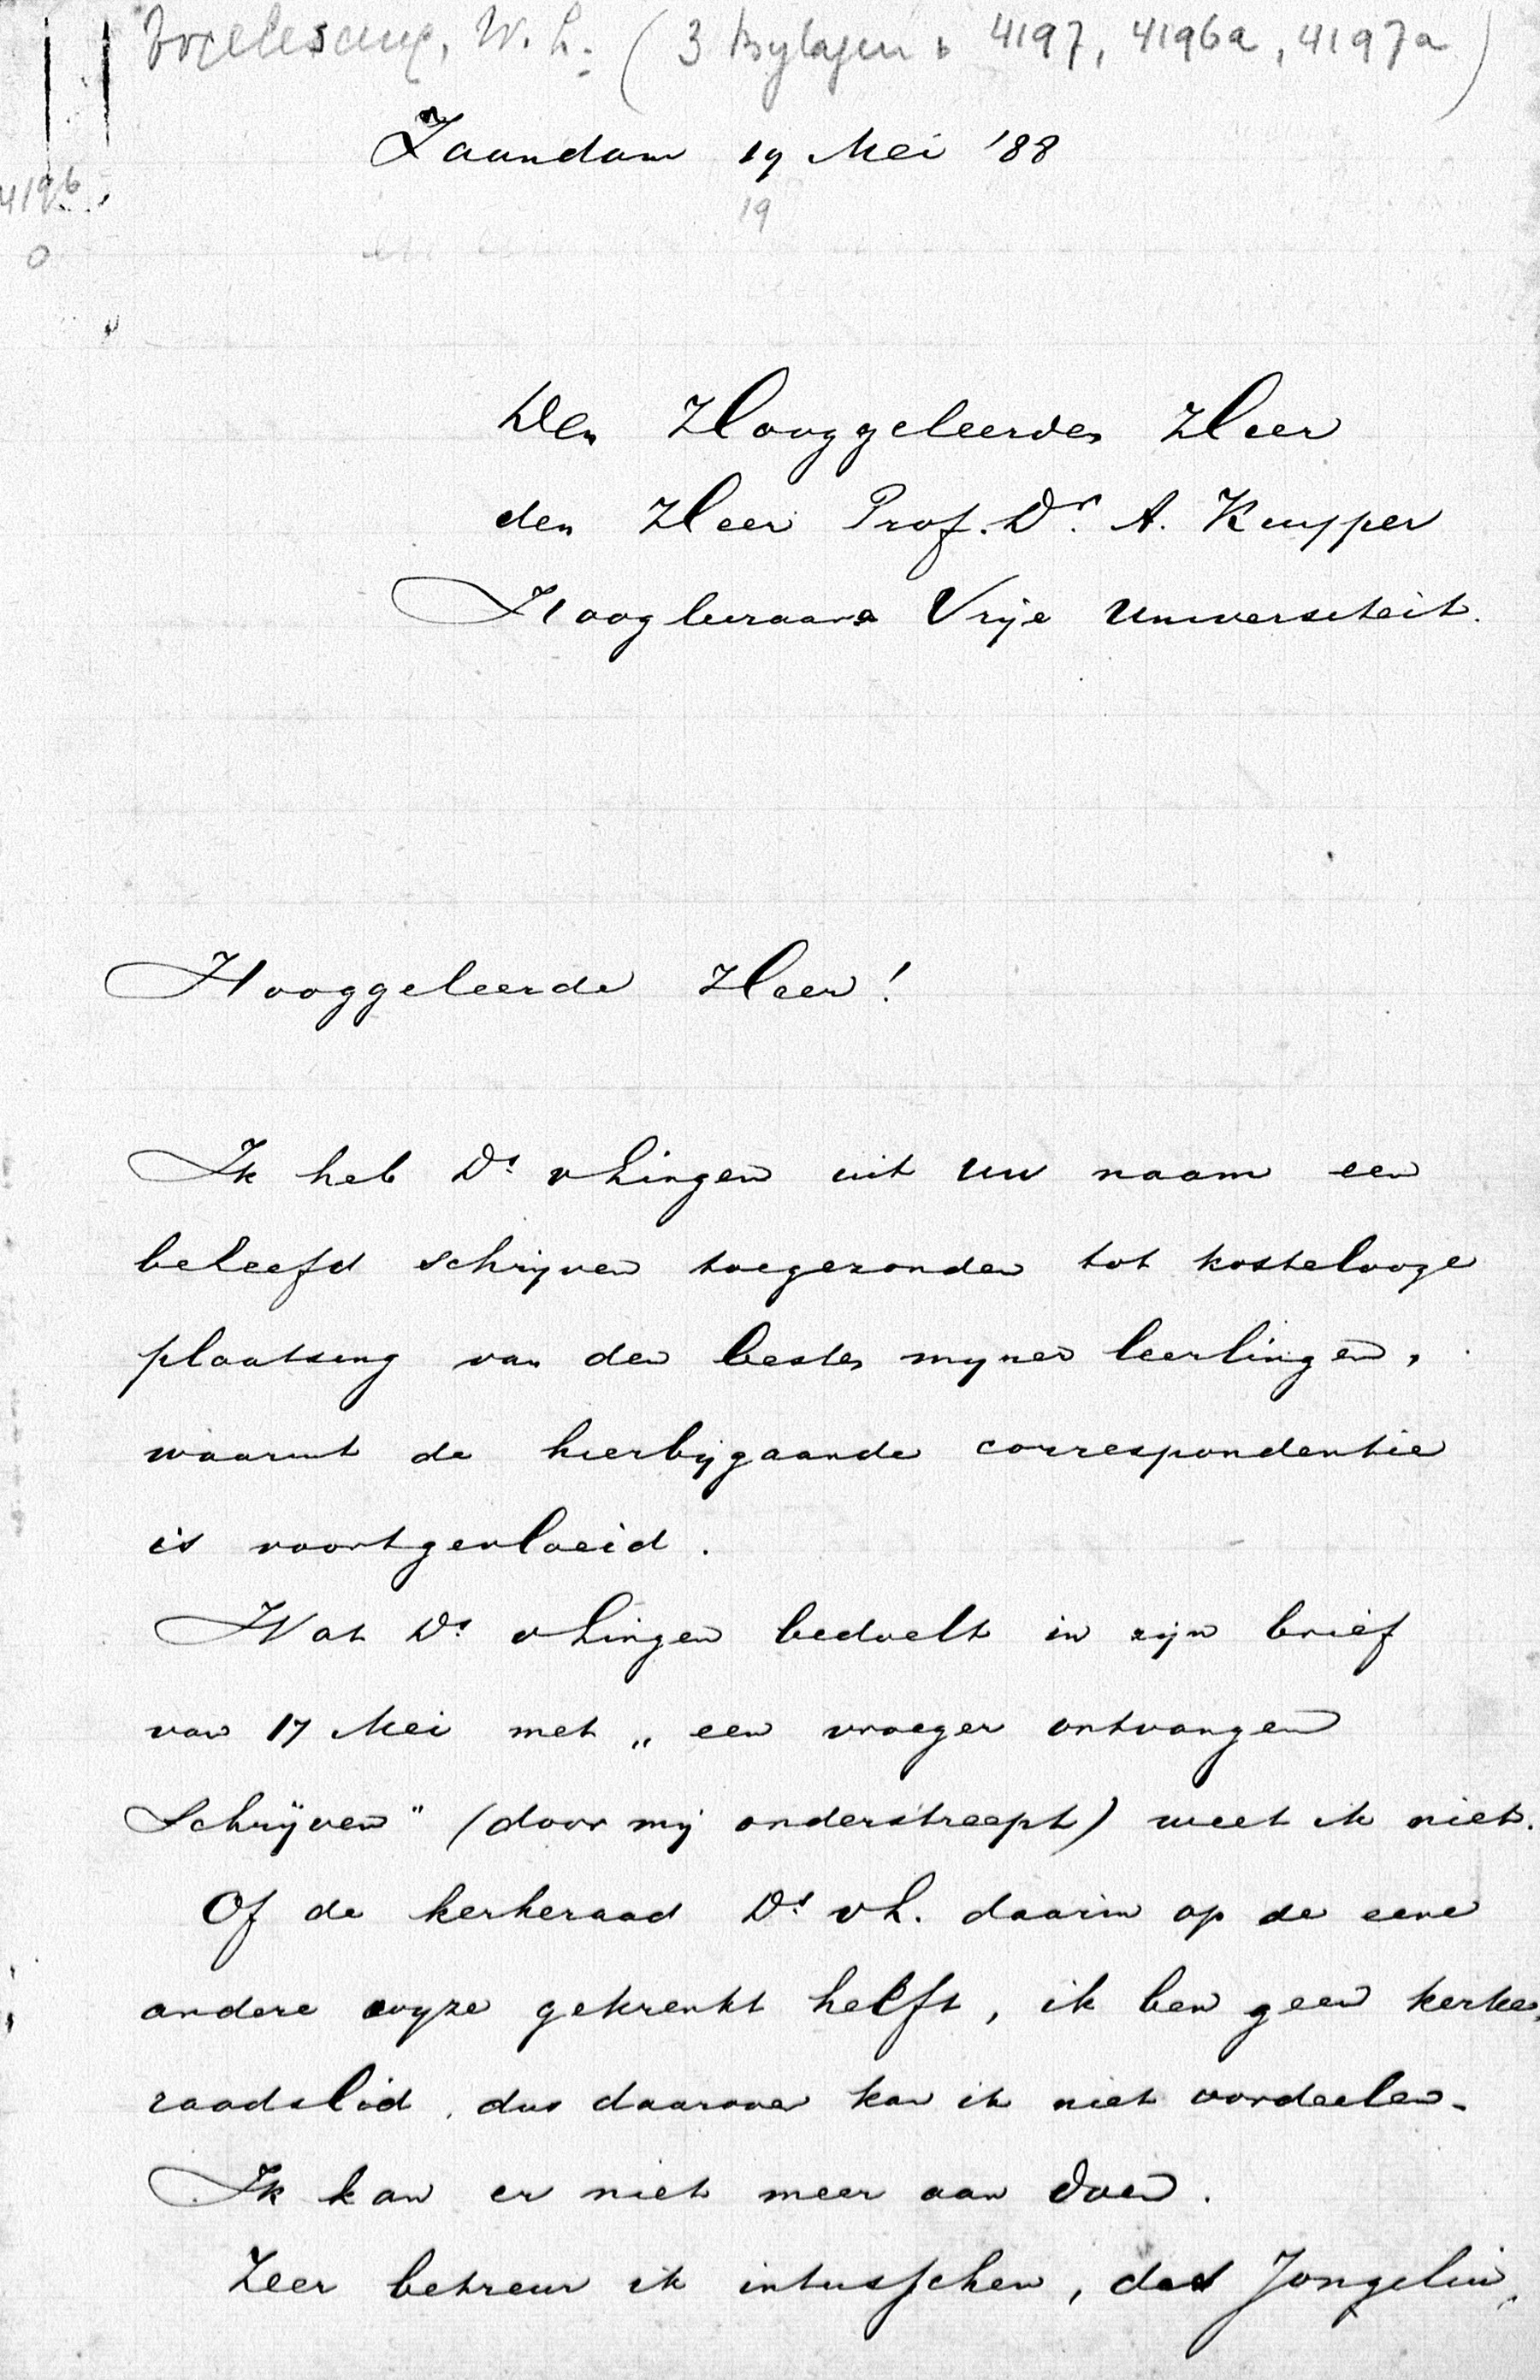 Vogelesang, W. L. (3 Bylagen: 4197, 4196a, 4197a)
Zaandam 19 Mei '88
19
4196
0
Den Hooggeleerden Heer
den Heer Prof. Dr. A. Kuyper
Hoogleeraar Vrije Universiteit.
Hooggeleerde Heer!
Ik heb Ds. v Lingen uit uw naam een
beleefd schrijven toegezonden tot kostelooze
plaatsing van den besten mijner leerlingen,
waaruit de hierbijgaande correspondentie
is voortgevloeid.
Wat Ds. v Lingen bedoelt in zijn brief
van 17 Mei met „een vroeger ontvangen
Schrijven" (door mij onderstreept) weet ik niet.
Of de kerkeraad Ds. v L. daarin op de eene
andere wyze gekrenkt heeft, ik ben geen kerke-
raadslid, dus daarover kan ik niet oordeelen.
Ik kan er niet meer aan doen.
Zeer betreur ik intusschen, dat Jongelui,